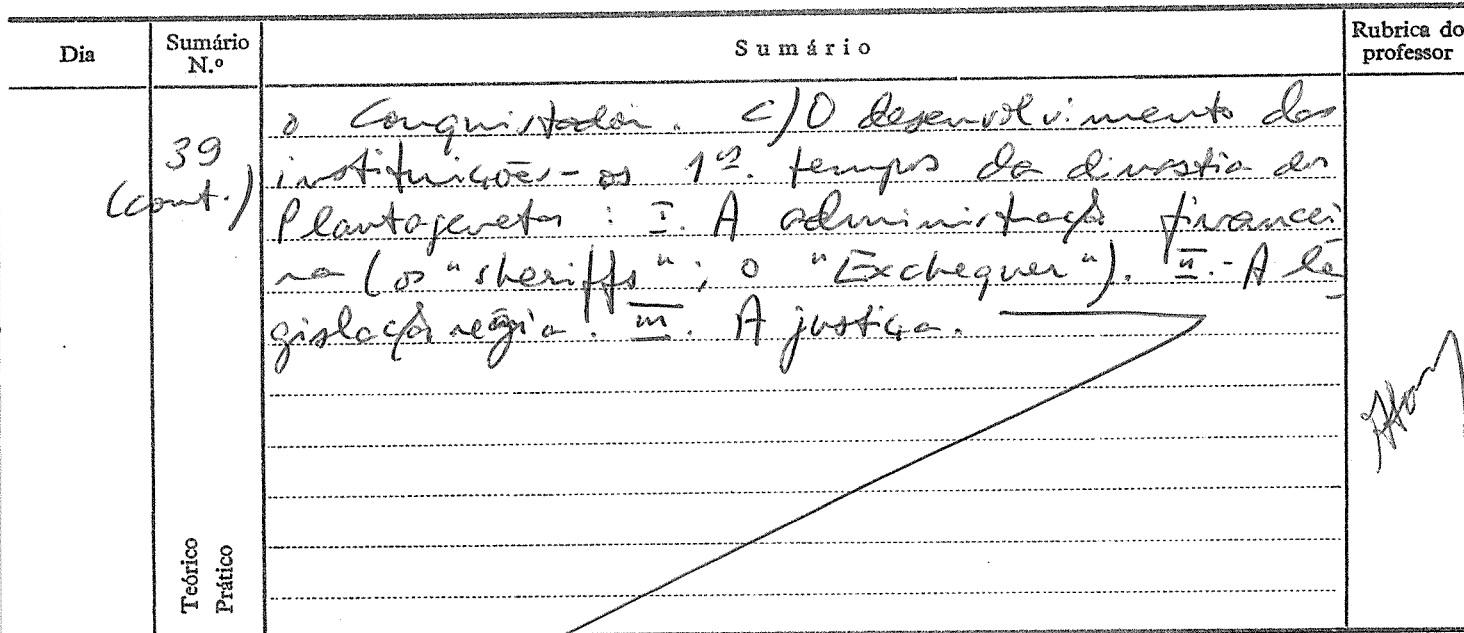 Dia
Sumário N.º
Sumário
Rubrica do professor
39 (cont.)
o Conquistador. c) O desenvolvimento das
instituições - os 1ºs. tempos da dinastia dos
Plantagenetas : I. A administração financei
ra (os "sheriffs"; o "Exchequer"). II. - A le
gislação régia. III. A justiça.
Teórico
Prático